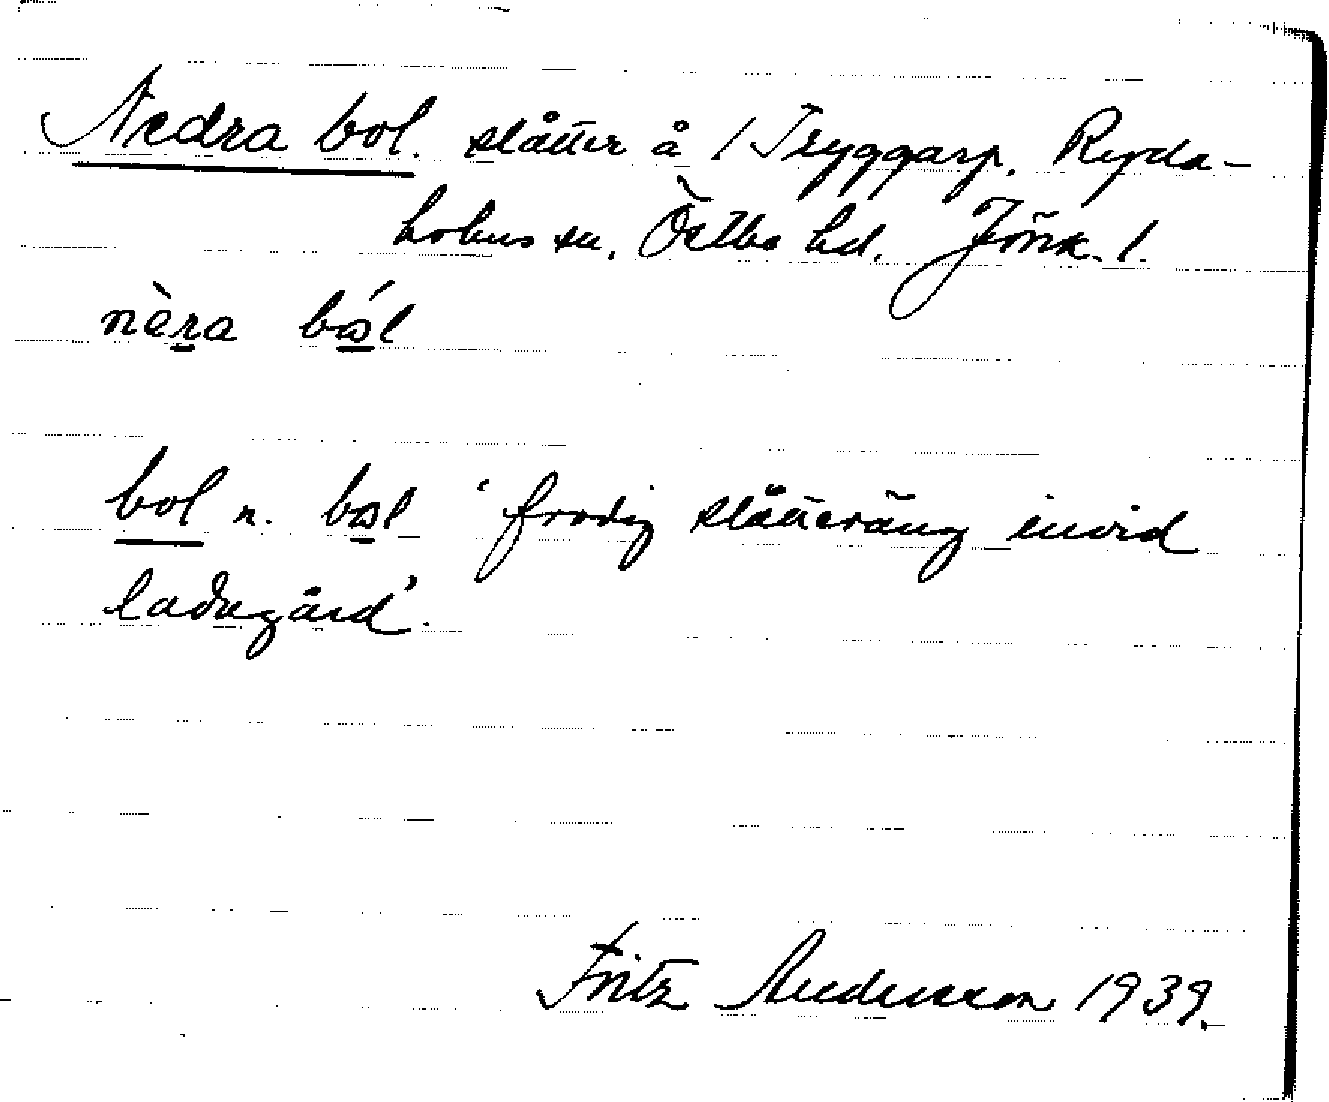 Nedra bol. slåtter å 1 Tryggarp. Ryda-
holms sn, Östbo hd. Jönk. l.
nèra bǿl
bol n. bøl 'frodig slåtteräng invid
ladugård'.
Fritz Andersson 1939.